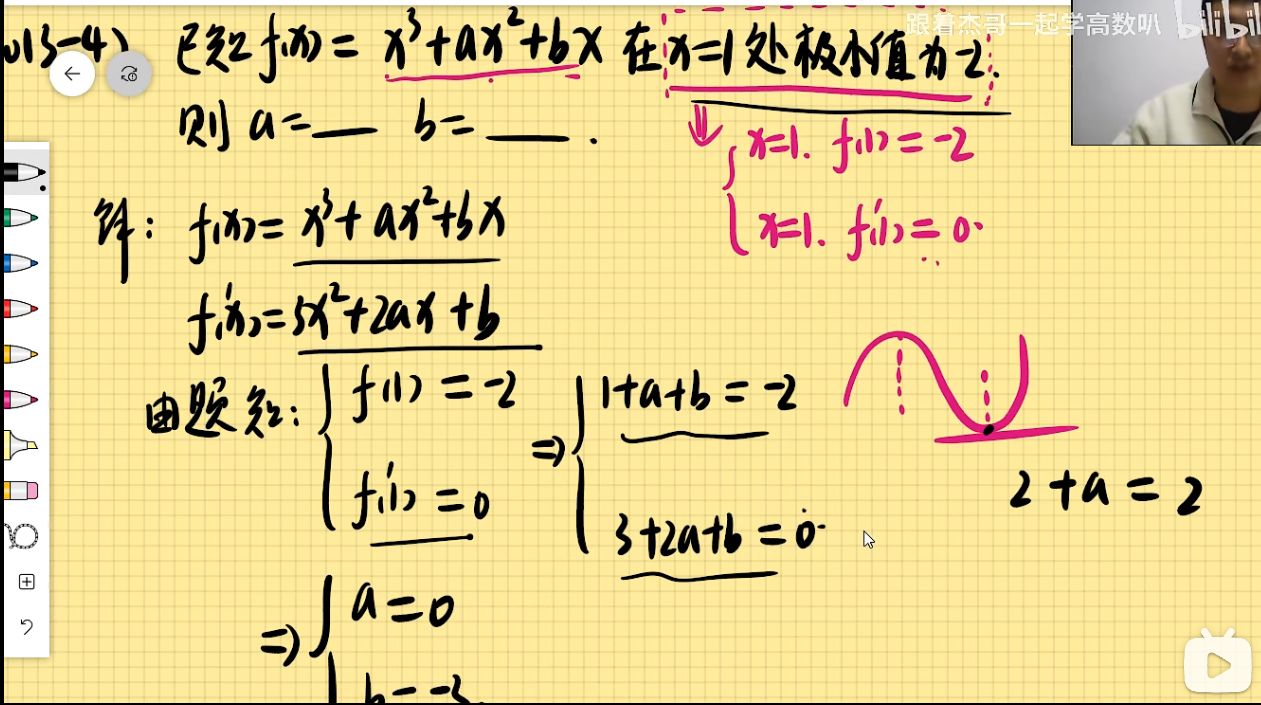 跟着杰哥一起学高数叭 bilibili
013-4) 已知 f(x) = x³+ax²+bx 在 x=1 处极小值为-2.
则 a=___ b=___.
x=1. f(1) = -2
x=1. f'(1) = 0.
解: f(x) = x³+ax²+bx
f'(x) = 3x²+2ax+b
由题知: { f(1) = -2 ⇒ { 1+a+b = -2
f'(1) = 0 3+2a+b = 0
2+a = 2
⇒ { a=0
b=-3.